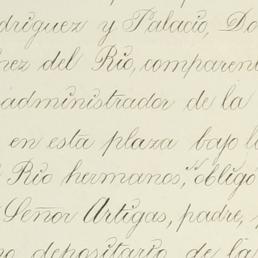 driguez y Palacio, Do
nez del Rio, comparen
administrador de la
en esta plaza bajo l
Rio hermanos, obligó
Señor Artigas, padre,
depositario de la